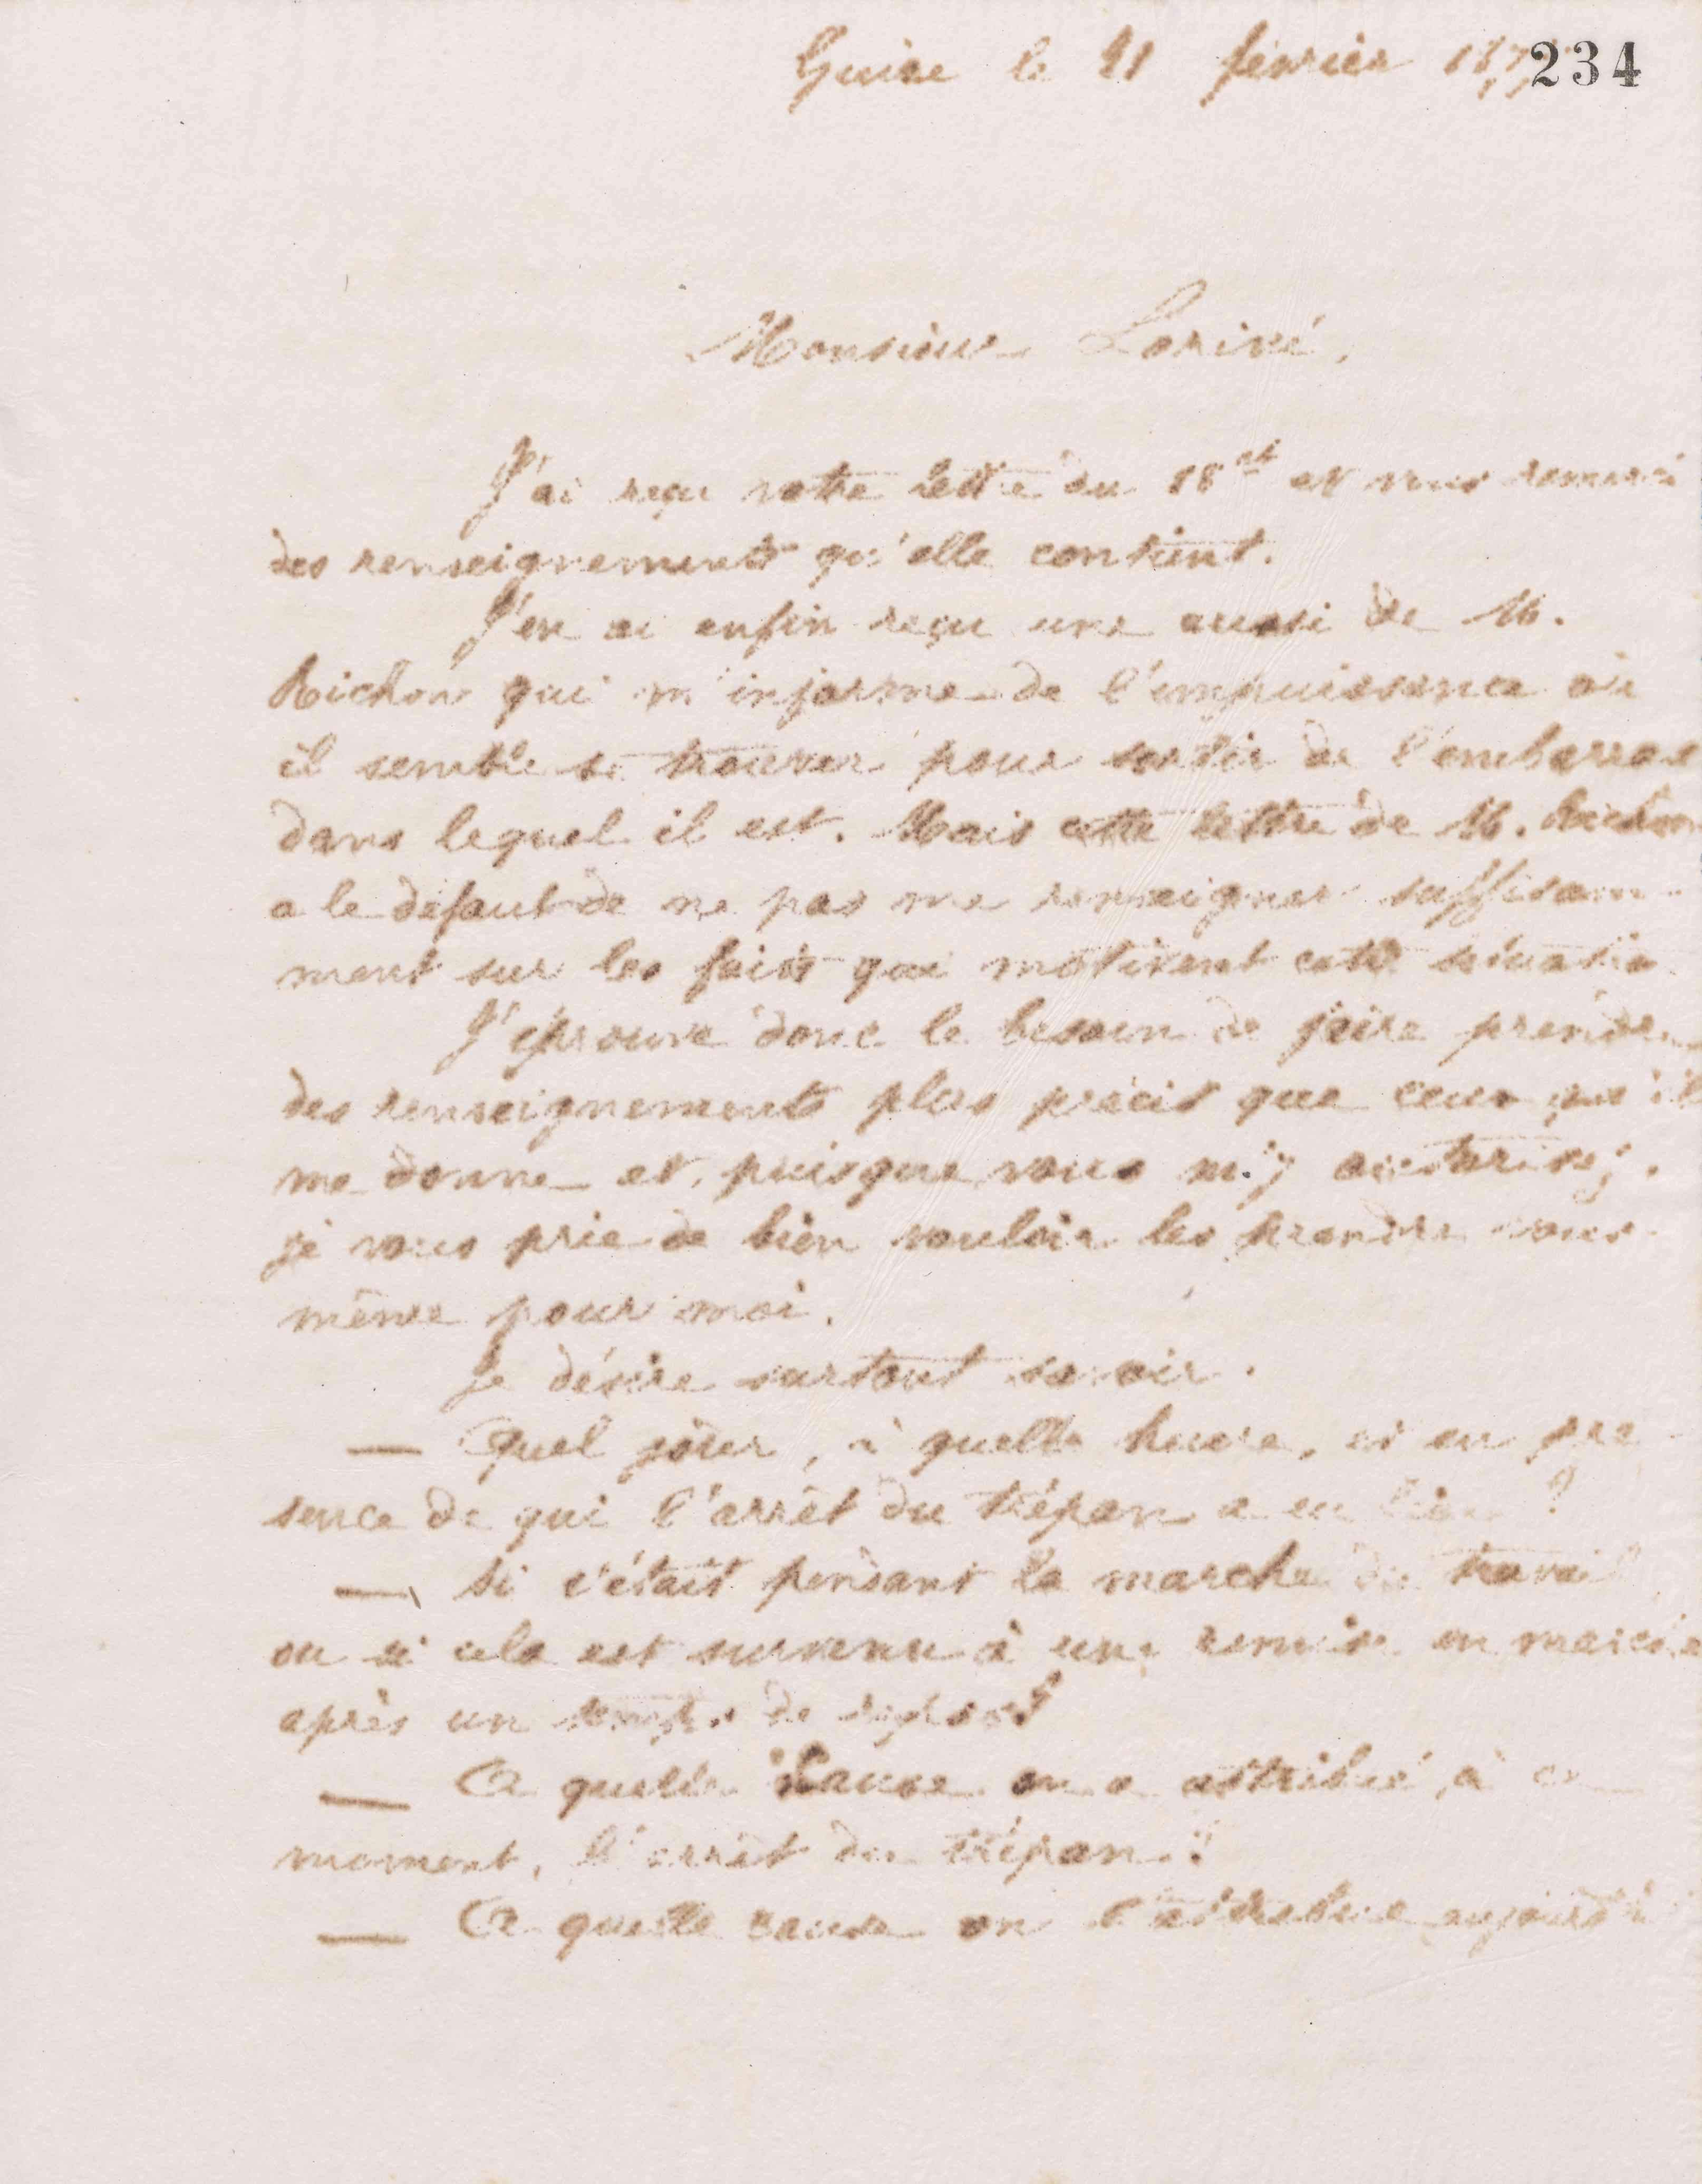 Guise le 21 février 187
234
Monsieur Loriné,
J'ai reçu votre lettre du 18 ct et vous remercie
des renseignements qu'elle contient.
J'en ai enfin reçu une aussi de M.
Richon qui m'informe de l'impuissance où
il semble se trouver pour sortir de l'embarras
dans lequel il est. Mais cette lettre de M. Richon
a le défaut de ne pas me renseigner suffisam-
ment sur les faits qui motivent cette situation.
J'éprouve donc le besoin de faire prendre
des renseignements plus précis que ceux qu'il
me donne et, puisque vous m'y autorisez,
je vous prie de bien vouloir les prendre vous-
même pour moi.
Je désire surtout savoir.
— Quel jour, à quelle heure, et en pré-
sence de qui l'arrêt du trépan a eu lieu ?
— Si c'était pendant la marche du travail
ou si cela est survenu à une remise en marche
après un temps de repos ?
— A quelle cause on a attribué, à ce
moment, l'arrêt du trépan ?
— A quelle cause on l'attribue aujourd'hui